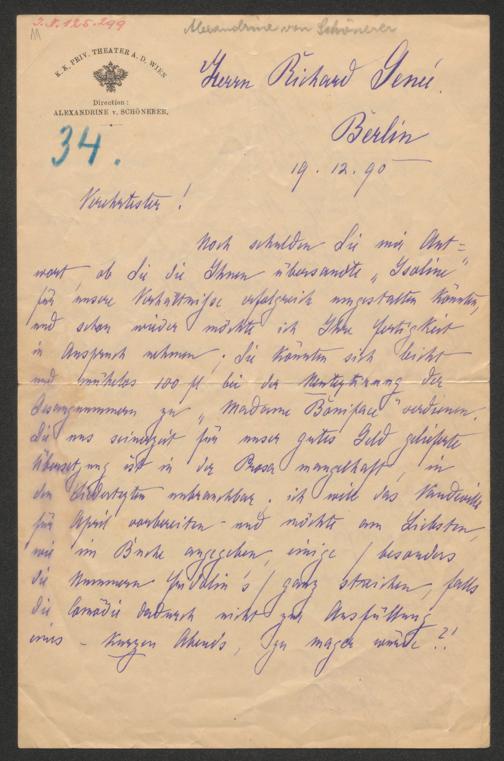 J.N. 125.299
Alexandrine von Schönerer
K. K. PRIV. THEATER A. D. WIEN
Direction:
ALEXANDRINE v. SCHÖNERER.
34.
Herrn Richard Genée.
Berlin
19. 12. 90
Verehrtester!
Noch schulden Sie mir Ant=
wort, ob Sie die Ihnen übersandte „Isoline"
für unsere Verhältnisse erfolgreich umgestalten könnten,
und schon wieder möchte ich Ihre Fertigkeit
in Anspruch nehmen; Sie könnten sich leicht
und mühelos 100 fl bei der Neutextirung der
Gesangnummern zu „Madame Boniface" verdienen.
Die uns seinerzeit für unser gutes Geld gelieferte
Übersetzung ist in der Prosa mangelhaft, in
den Liedertexten unbrauchbar. ich will das Vaudeville
für April vorbereiten - und möchte am Liebsten,
wie im Buche angegeben, einige / besonders
die Nummern Fridolin's / ganz streichen, falls
die Comödie dadurch nicht zur Ausfüllung
eines - kurzen Abends, zu mager würde?!